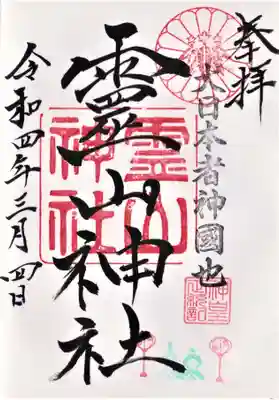 奉拝
大日本者神國也
靈山神社
霊山神社
令和四年三月四日